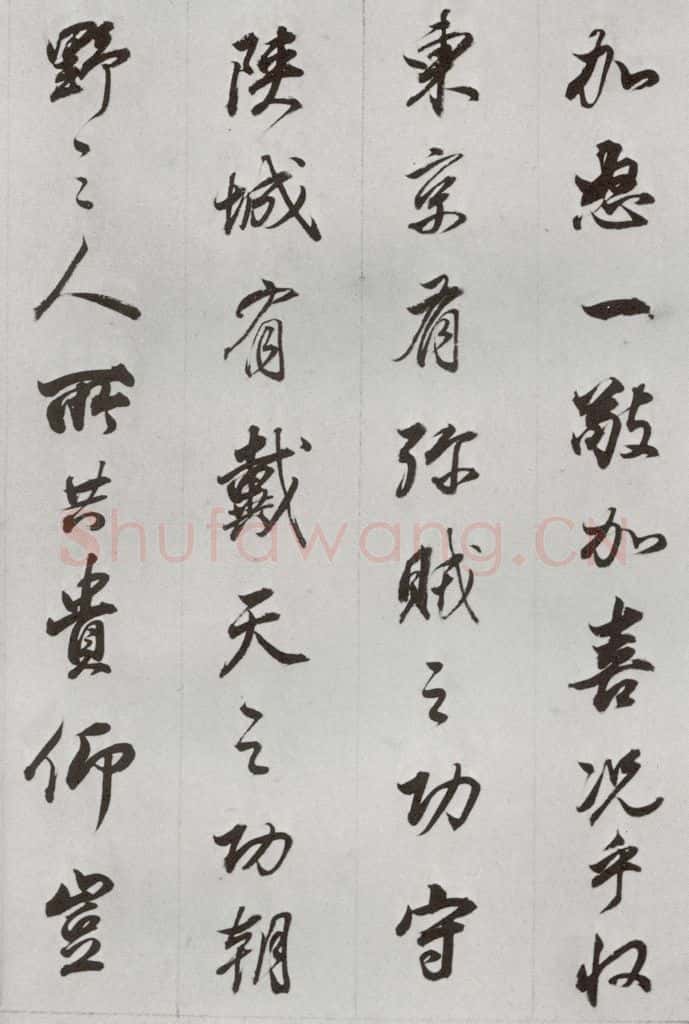 加怒一敬加喜况乎收
東京有殄賊之功守
陝城有戴天之功朝
野之人所共貴仰豈
Shufawang.CN